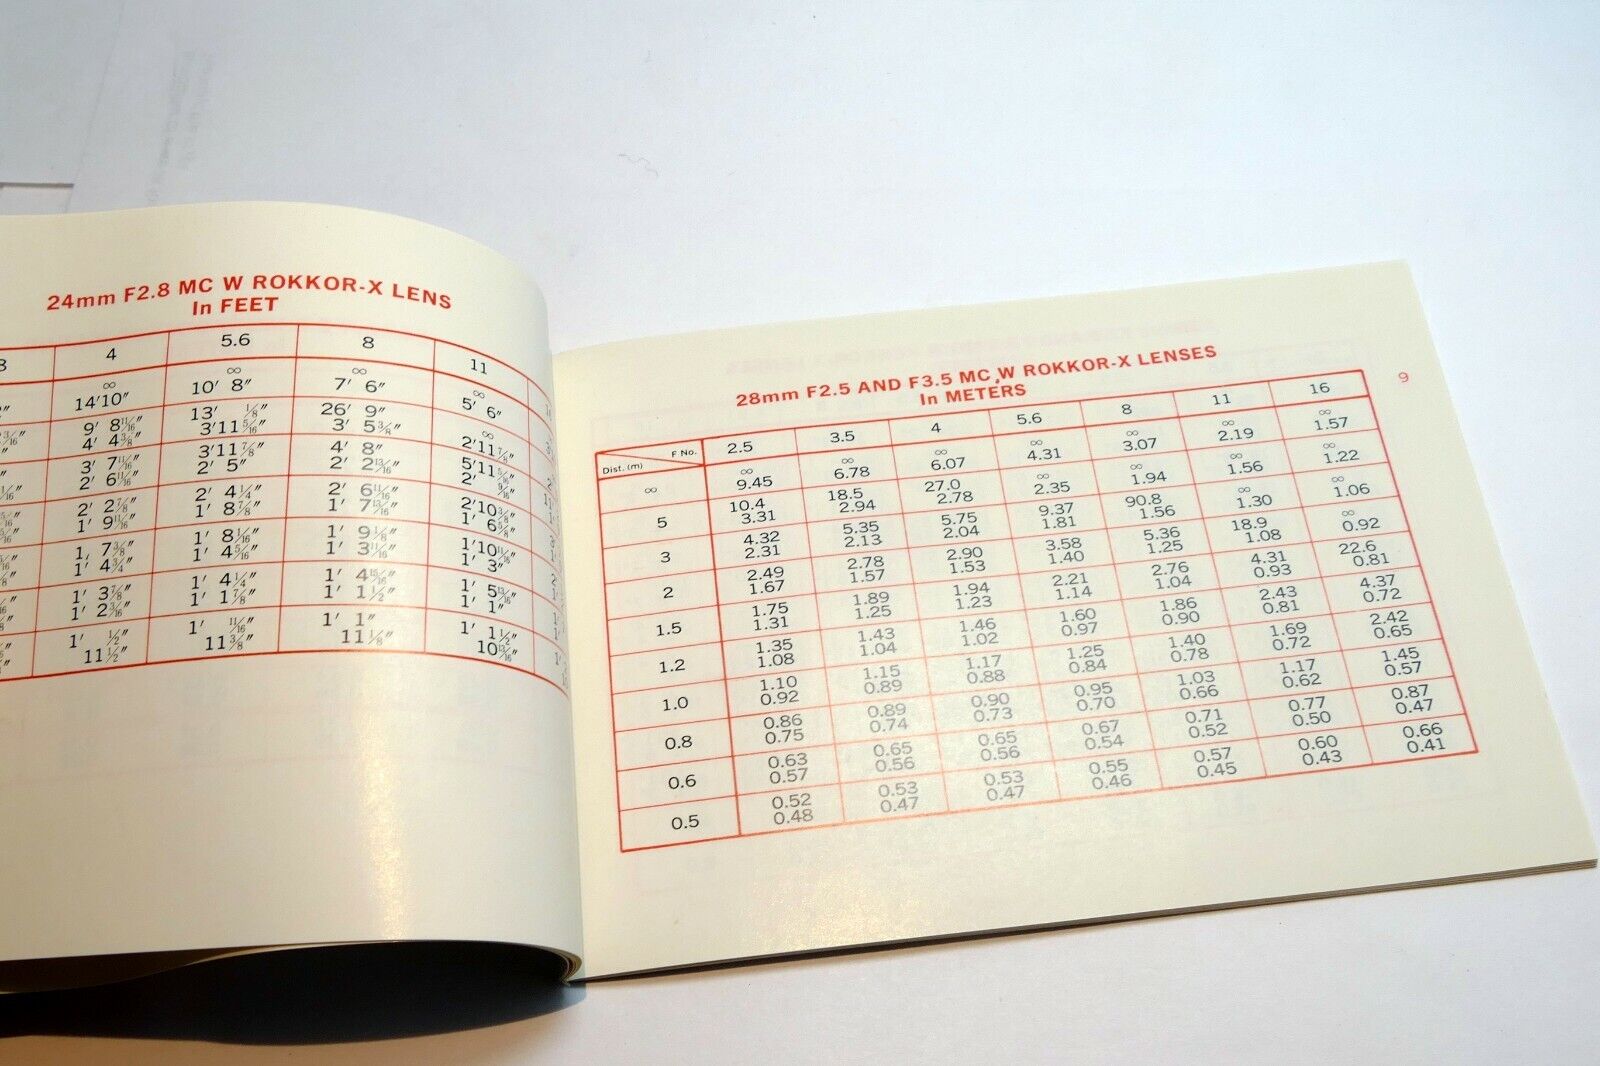 24mm F2.8 MC W ROKKOR-X LENS
In FEET
4 5.6 8 11
∞ ∞ ∞ ∞
14'10" 10' 8" 7' 6" 5' 6"
9' 8 11/16" 13' 1/8" 26' 9" ∞
4' 4 3/8" 3'11 5/16" 3' 5 3/8" 2'11 7/8"
3' 7 11/16" 3'11 7/8" 4' 8" 5'11 5/16"
2' 6 11/16" 2' 5" 2' 2 13/16" 2' 9/16"
2' 2 7/8" 2' 4 1/4" 2' 6 11/16" 2'10 3/8"
1' 9 11/16" 1' 8 7/8" 1' 7 13/16" 1' 6 5/8"
1' 7 3/8" 1' 8 1/16" 1' 9 1/8" 1'10 11/16"
1' 4 3/4" 1' 4 5/16" 1' 3 11/16" 1' 3"
1' 3 7/8" 1' 4 1/4" 1' 4 15/16" 1' 5 13/16"
1' 2 3/16" 1' 1 7/8" 1' 1 1/2" 1' 1"
1' 1/2" 1' 11/16" 1' 1" 1' 1 1/2"
11 1/2" 11 3/8" 11 1/8" 10 13/16"
9
28mm F2.5 AND F3.5 MC W ROKKOR-X LENSES
In METERS
F No. 2.5 3.5 4 5.6 8 11 16
Dist. (m)
∞ ∞ ∞ ∞ ∞ ∞ ∞ ∞
9.45 6.78 6.07 4.31 3.07 2.19 1.57
5 10.4 18.5 27.0 ∞ ∞ ∞ ∞
3.31 2.94 2.78 2.35 1.94 1.56 1.22
3 4.32 5.35 5.75 9.37 90.8 ∞ ∞
2.31 2.13 2.04 1.81 1.56 1.30 1.06
2 2.49 2.78 2.90 3.58 5.36 18.9 ∞
1.67 1.57 1.53 1.40 1.25 1.08 0.92
1.5 1.75 1.89 1.94 2.21 2.76 4.31 22.6
1.31 1.25 1.23 1.14 1.04 0.93 0.81
1.2 1.35 1.43 1.46 1.60 1.86 2.43 4.37
1.08 1.04 1.02 0.97 0.90 0.81 0.72
1.0 1.10 1.15 1.17 1.25 1.40 1.69 2.42
0.92 0.89 0.88 0.84 0.78 0.72 0.65
0.8 0.86 0.89 0.90 0.95 1.03 1.17 1.45
0.75 0.74 0.73 0.70 0.66 0.62 0.57
0.6 0.63 0.65 0.65 0.67 0.71 0.77 0.87
0.57 0.56 0.56 0.54 0.52 0.50 0.47
0.5 0.52 0.53 0.53 0.55 0.57 0.60 0.66
0.48 0.47 0.47 0.46 0.45 0.43 0.41